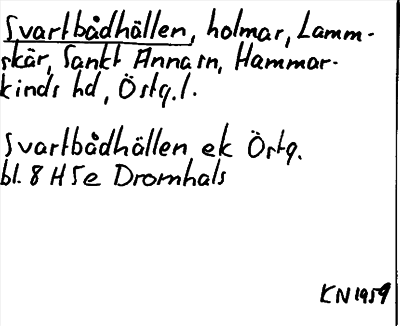 Svartbådhällen, holmar, Lamm-
skär, Sankt Anna sn, Hammar-
kinds hd, Östg. l.
Svartbådhällen ek Östg.
bl. 8 H 5e Dromhals
KN 1959